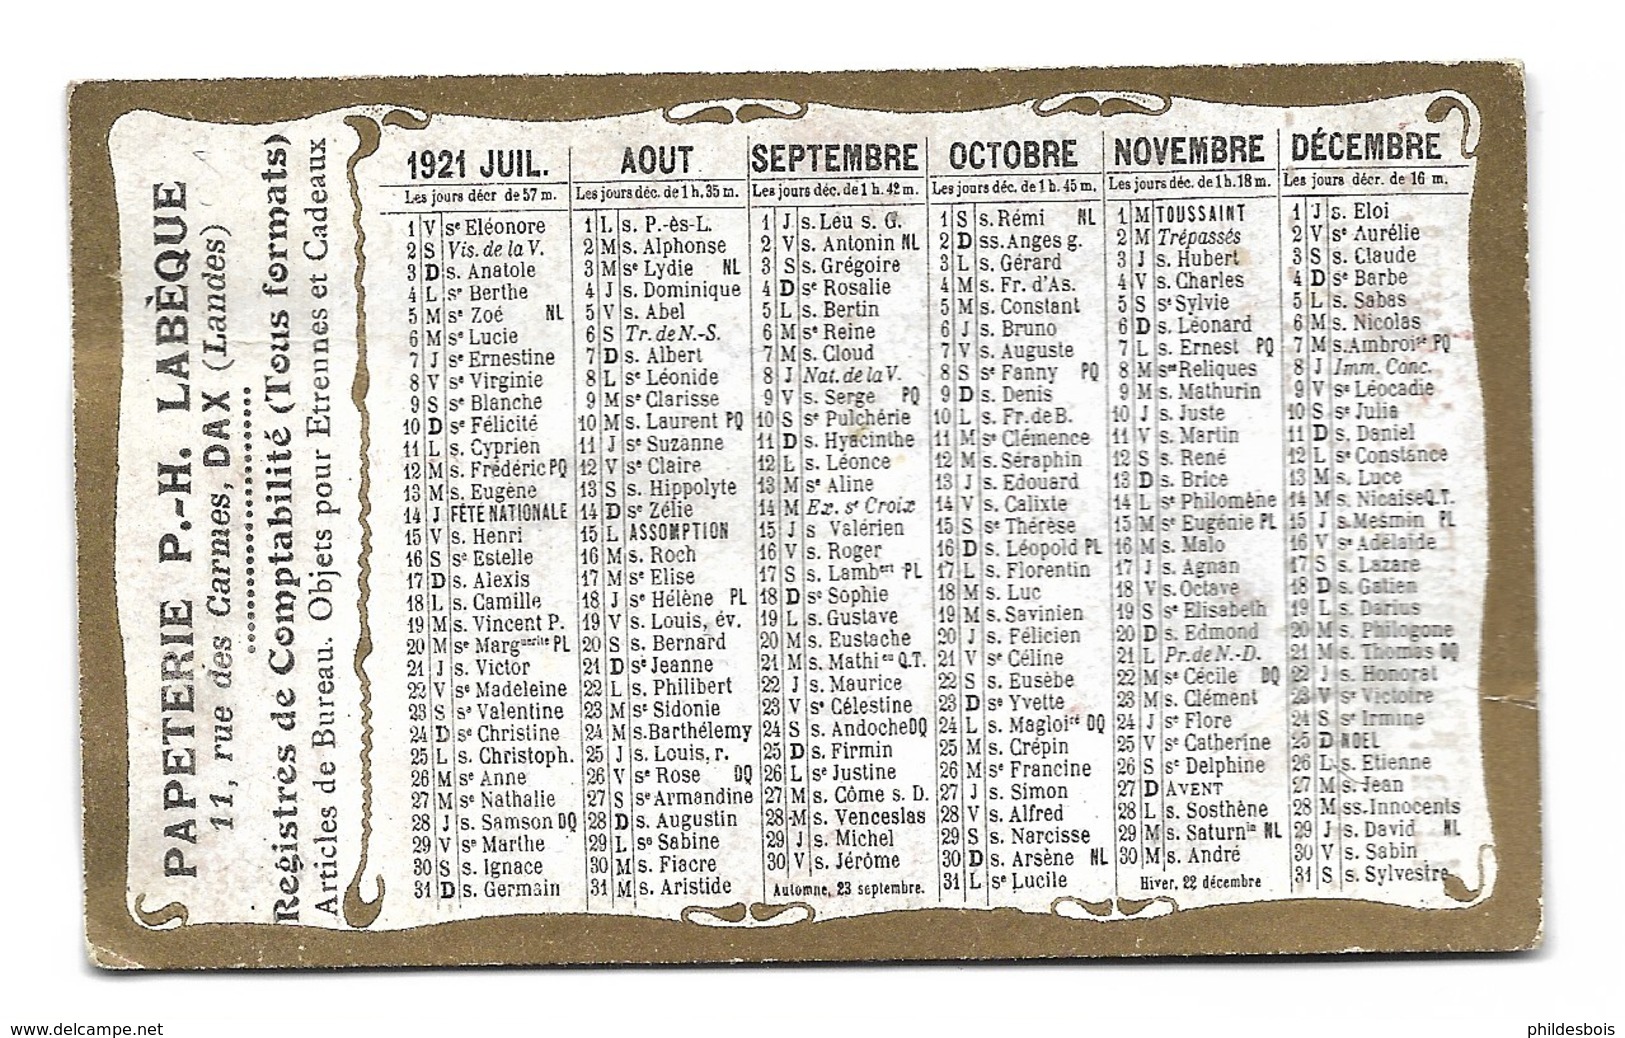 PAPETERIE P.-H. LABÈQUE
11, rue des Carmes, DAX (Landes)
Registres de Comptabilité (Tous formats)
Articles de Bureau. Objets pour Etrennes et Cadeaux
1921 JUIL.
Les jours décr de 57 m.
1 V se Eléonore
2 S Vis. de la V.
3 D s. Anatole
4 L se Berthe
5 M se Zoé NL
6 M se Lucie
7 J se Ernestine
8 V se Virginie
9 S se Blanche
10 D se Félicité
11 L s. Cyprien
12 M s. Frédéric PQ
13 M s. Eugène
14 J FÊTE NATIONALE
15 V s. Henri
16 S se Estelle
17 D s. Alexis
18 L s. Camille
19 M s. Vincent P.
20 M se Marguerite PL
21 J s. Victor
22 V se Madeleine
23 S se Valentine
24 D se Christine
25 L s. Christoph.
26 M se Anne
27 M se Nathalie
28 J s. Samson DQ
29 V se Marthe
30 S s. Ignace
31 D s. Germain
AOUT
Les jours déc. de 1 h. 35 m.
1 L s. P.-ès-L.
2 M s. Alphonse
3 M se Lydie NL
4 J s. Dominique
5 V s. Abel
6 S Tr. de N.-S.
7 D s. Albert
8 L se Léonide
9 M se Clarisse
10 M s. Laurent PQ
11 J se Suzanne
12 V se Claire
13 S s. Hippolyte
14 D se Zélie
15 L ASSOMPTION
16 M s. Roch
17 M se Elise
18 J se Hélène PL
19 V s. Louis, év.
20 S s. Bernard
21 D se Jeanne
22 L s. Philibert
23 M se Sidonie
24 M s. Barthélemy
25 J s. Louis, r.
26 V se Rose DQ
27 S se Armandine
28 D s. Augustin
29 L se Sabine
30 M s. Fiacre
31 M s. Aristide
SEPTEMBRE
Les jours déc. de 1 h. 42 m.
1 J s. Leu s. G.
2 V s. Antonin NL
3 S s. Grégoire
4 D se Rosalie
5 L s. Bertin
6 M se Reine
7 M s. Cloud
8 J Nat. de la V.
9 V s. Serge PQ
10 S se Pulchérie
11 D s. Hyacinthe
12 L s. Léonce
13 M se Aline
14 M Ex. se Croix
15 J s Valérien
16 V s. Roger
17 S s. Lambert PL
18 D se Sophie
19 L s. Gustave
20 M s. Eustache
21 M s. Mathieu Q.T.
22 J s. Maurice
23 V se Célestine
24 S s. Andoche DQ
25 D s. Firmin
26 L se Justine
27 M s. Côme s. D.
28 M s. Venceslas
29 J s. Michel
30 V s. Jérôme
Automne, 23 septembre.
OCTOBRE
Les jours déc. de 1 h. 45 m.
1 S s. Rémi NL
2 D ss. Anges g.
3 L s. Gérard
4 M s. Fr. d'As.
5 M s. Constant
6 J s. Bruno
7 V s. Auguste
8 S se Fanny PQ
9 D s. Denis
10 L s. Fr. de B.
11 M se Clémence
12 M s. Séraphin
13 J s. Edouard
14 V s. Calixte
15 S se Thérèse
16 D s. Léopold PL
17 L s. Florentin
18 M s. Luc
19 M s. Savinien
20 J s. Félicien
21 V se Céline
22 S s. Eusèbe
23 D se Yvette
24 L s. Magloire DQ
25 M s. Crépin
26 M se Francine
27 J s. Simon
28 V s. Alfred
29 S s. Narcisse
30 D s. Arsène NL
31 L se Lucile
NOVEMBRE
Les jours déc. de 1 h. 18 m.
1 M TOUSSAINT
2 M Trépassés
3 J s. Hubert
4 V s. Charles
5 S se Sylvie
6 D s. Léonard
7 L s. Ernest PQ
8 M stes Reliques
9 M s. Mathurin
10 J s. Juste
11 V s. Martin
12 S s. René
13 D s. Brice
14 L se Philomène
15 M se Eugénie PL
16 M s. Malo
17 J s. Agnan
18 V s. Octave
19 S se Elisabeth
20 D s. Edmond
21 L Pr. de N.-D.
22 M se Cécile DQ
23 M s. Clément
24 J se Flore
25 V se Catherine
26 S se Delphine
27 D AVENT
28 L s. Sosthène
29 M s. Saturnin NL
30 M s. André
Hiver, 22 décembre
DÉCEMBRE
Les jours décr. de 16 m.
1 J s. Eloi
2 V se Aurélie
3 S s. Claude
4 D se Barbe
5 L s. Sabas
6 M s. Nicolas
7 M s. Ambroise PQ
8 J Imm. Conc.
9 V se Léocadie
10 S se Julie
11 D s. Daniel
12 L se Constance
13 M s. Luce
14 M s. Nicaise Q.T.
15 J s. Mesmin PL
16 V se Adélaïde
17 S s. Lazare
18 D s. Gatien
19 L s. Darius
20 M s. Philogone
21 M s. Thomas DQ
22 J s. Honorat
23 V se Victoire
24 S se Irmine
25 D NOEL
26 L s. Etienne
27 M s. Jean
28 M ss. Innocents
29 J s. David NL
30 V s. Sabin
31 S s. Sylvestre
www.delcampe.net
phildesbois